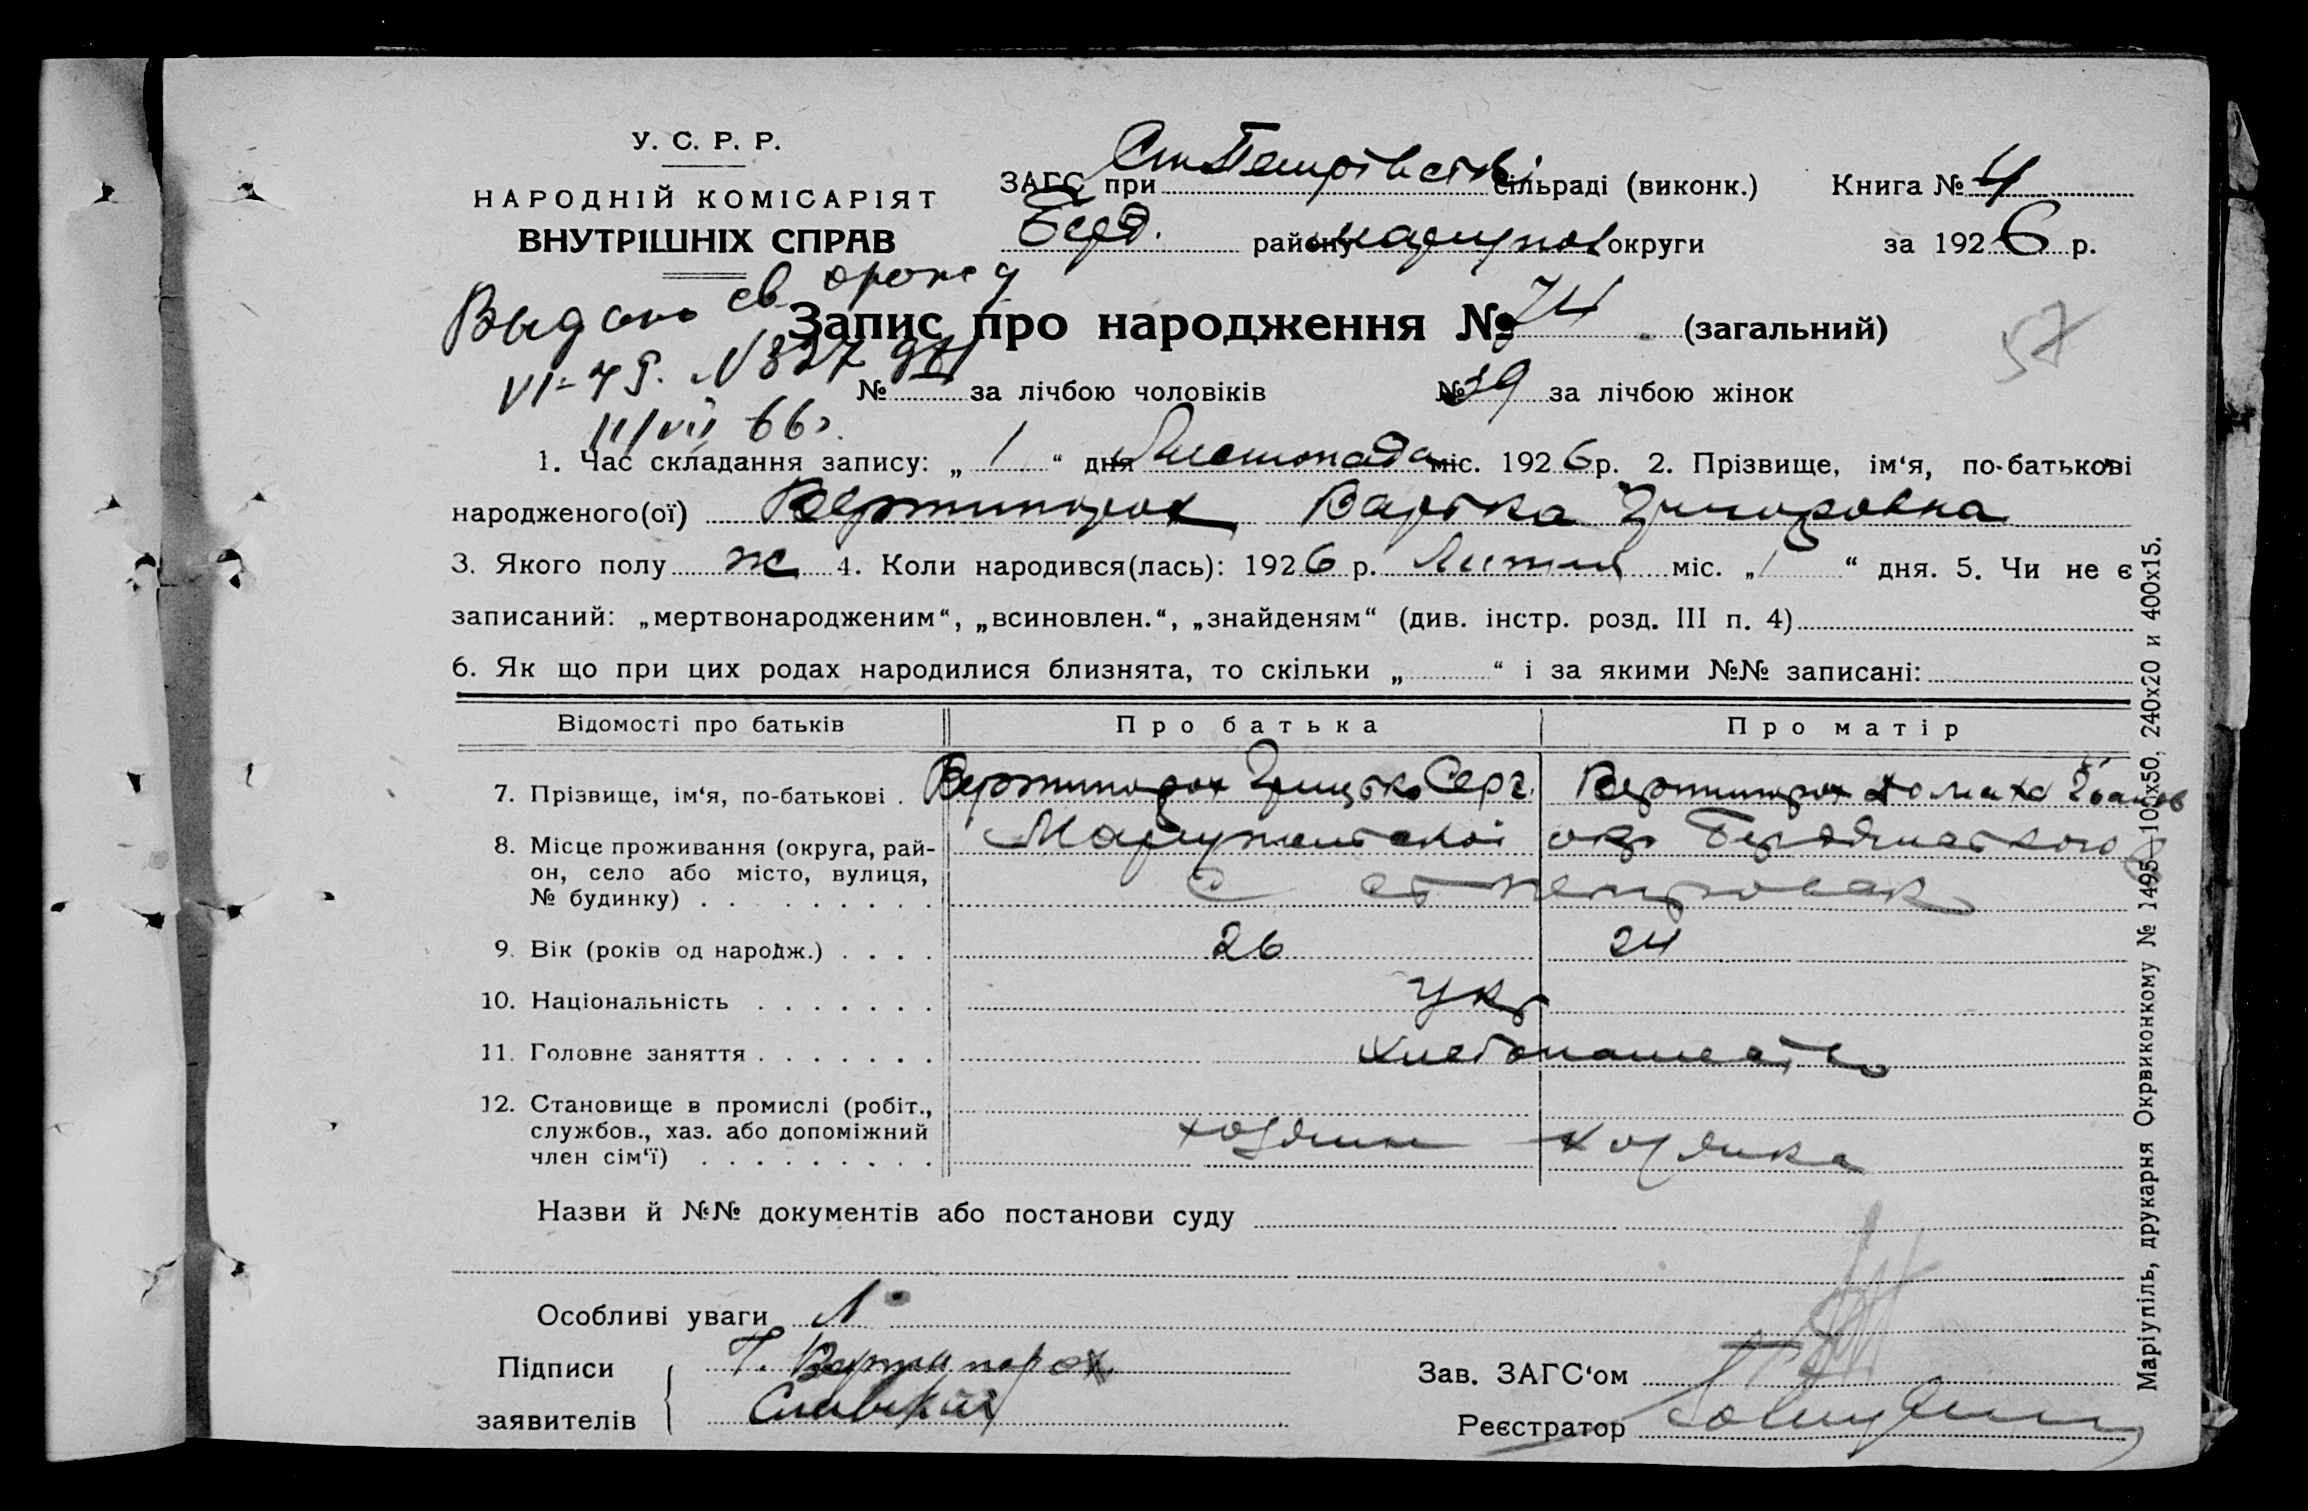 У. С. Р. Р.
НАРОДНІЙ КОМІСАРІЯТ
ВНУТРІШНІХ СПРАВ
ЗАГС при Ст Петрівські сільраді (виконк.) Книга № 4
Берд. району Мариупол округи за 1926 р.
Выдано св
Запис про народження № 74 (загальний)
57
VI-ЧЯ. N 327
№ за лічбою чоловіків № 39 за лічбою жінок
11/VII 66г.
1. Час складання запису: „ 1 “ дня Листопада міс. 1926 р. 2. Прізвище, ім‘я, по-батькові
народженого(ої) Вертипорох Варька Григоровна
3. Якого полу ж 4. Коли народився(лась): 1926 р. Липня міс. „ 1 “ дня. 5. Чи не є
записаний: „мертвонародженим“, „всиновлен.“, „знайденям“ (див. інстр. розд. III п. 4)
6. Як що при цих родах народилися близнята, то скільки „ “ і за якими №№ записані:
Відомості про батьків Про батька Про матір
7. Прізвище, ім‘я, по-батькові . Вертипорох Грицько Серг. Вертипорох Домаха Іванов
8. Місце проживання (округа, рай-
он, село або місто, вулиця,
№ будинку) . . . . . . . . . Мариупольскої окр Бердянського
с ст петровск
9. Вік (років од народж.) . . . . 26 24
10. Національність . . . . . . . Укр
11. Головне заняття . . . . . . . Хлебопашество
12. Становище в промислі (робіт.,
службов., хаз. або допоміжний
член сім‘ї) . . . . . . . . . хозяин хозяика
Назви й №№ документів або постанови суду
Особливі уваги
Підписи Г. Вертипорох
заявителів
Зав. ЗАГС‘ом
Реєстратор
Маріупіль, друкарня Окрвиконкому № 1495—100х50, 240х20 и 400х15.